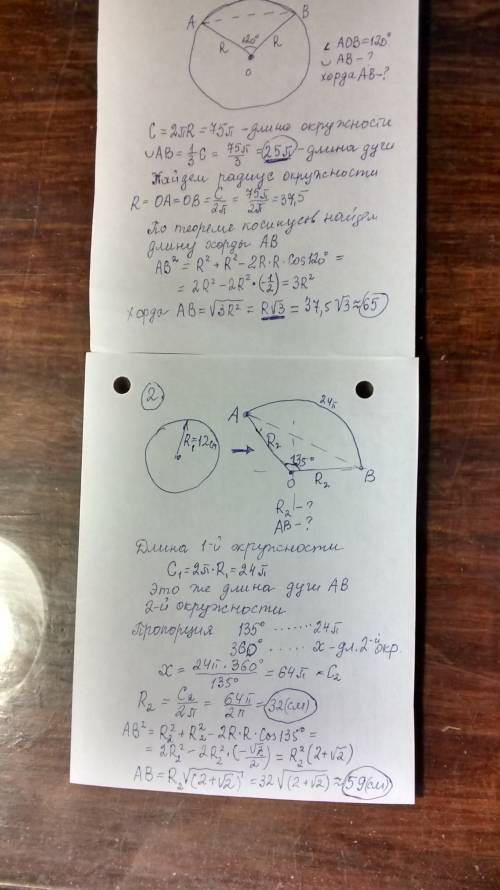 A B
120°
R R
O
∠ AOB=120°
◡ AB - ?
хорда AB - ?
C = 2πR = 75π - длина окружности
◡AB = 1/3 C = 75π/3 = 25π - длина дуги
Найдем радиус окружности
R = OA = OB = C/2π = 75π/2π = 37,5
По теореме косинусов найдем
длину хорды AB
AB² = R² + R² - 2R·R·cos120° =
= 2R² - 2R²·(-1/2) = 3R²
хорда AB = √3R² = R√3 = 37,5√3 ≈ 65
2.
R₁=12см
A 24π
R₂ 135°
O R₂ B
R₂ - ?
AB - ?
Длина 1-й окружности
C₁ = 2π·R₁ = 24π
Это же длина дуги AB
2-й окружности
Пропорция 135° ....... 24π
360° ..... x - дл. 2-й окр.
X = 24π·360°/135° = 64π = C₂
R₂ = C₂/2π = 64π/2π = 32(см)
AB² = R₂² + R₂² - 2R·R·cos135° =
= 2R₂² - 2R₂²·(-√2/2) = R₂²(2+√2)
AB = R₂√(2+√2) = 32√(2+√2) ≈ 59(см)